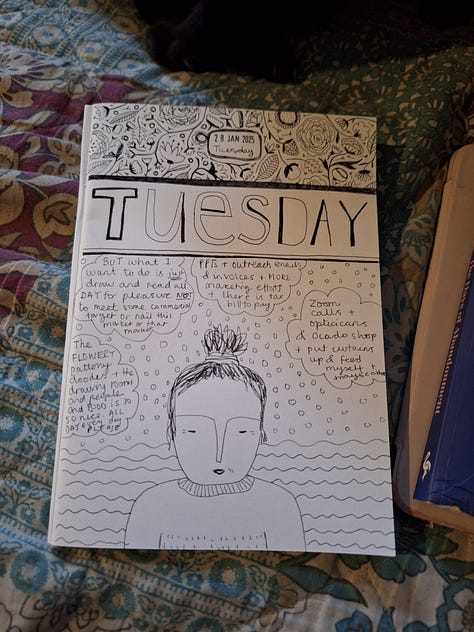 28 JAN 2025
Tuesday
TUESDAY
BUT what I
want to do is just
draw and read all
DAY for pleasure NOT
to meet some commercial
target or nail this
market or that
market
PPTs + outreach emails
& invoices + MORE
marketing effort
+ there is tax
bill to pay
Zoom
calls +
opticians
& Ocado shop
+ put curtains
up & feed
myself
maybe
The
FLOWERY
patterny
doodles + the
drawing rooms
and people
and FOOD is so
so nice. ALL
DAY every day
PLEASE